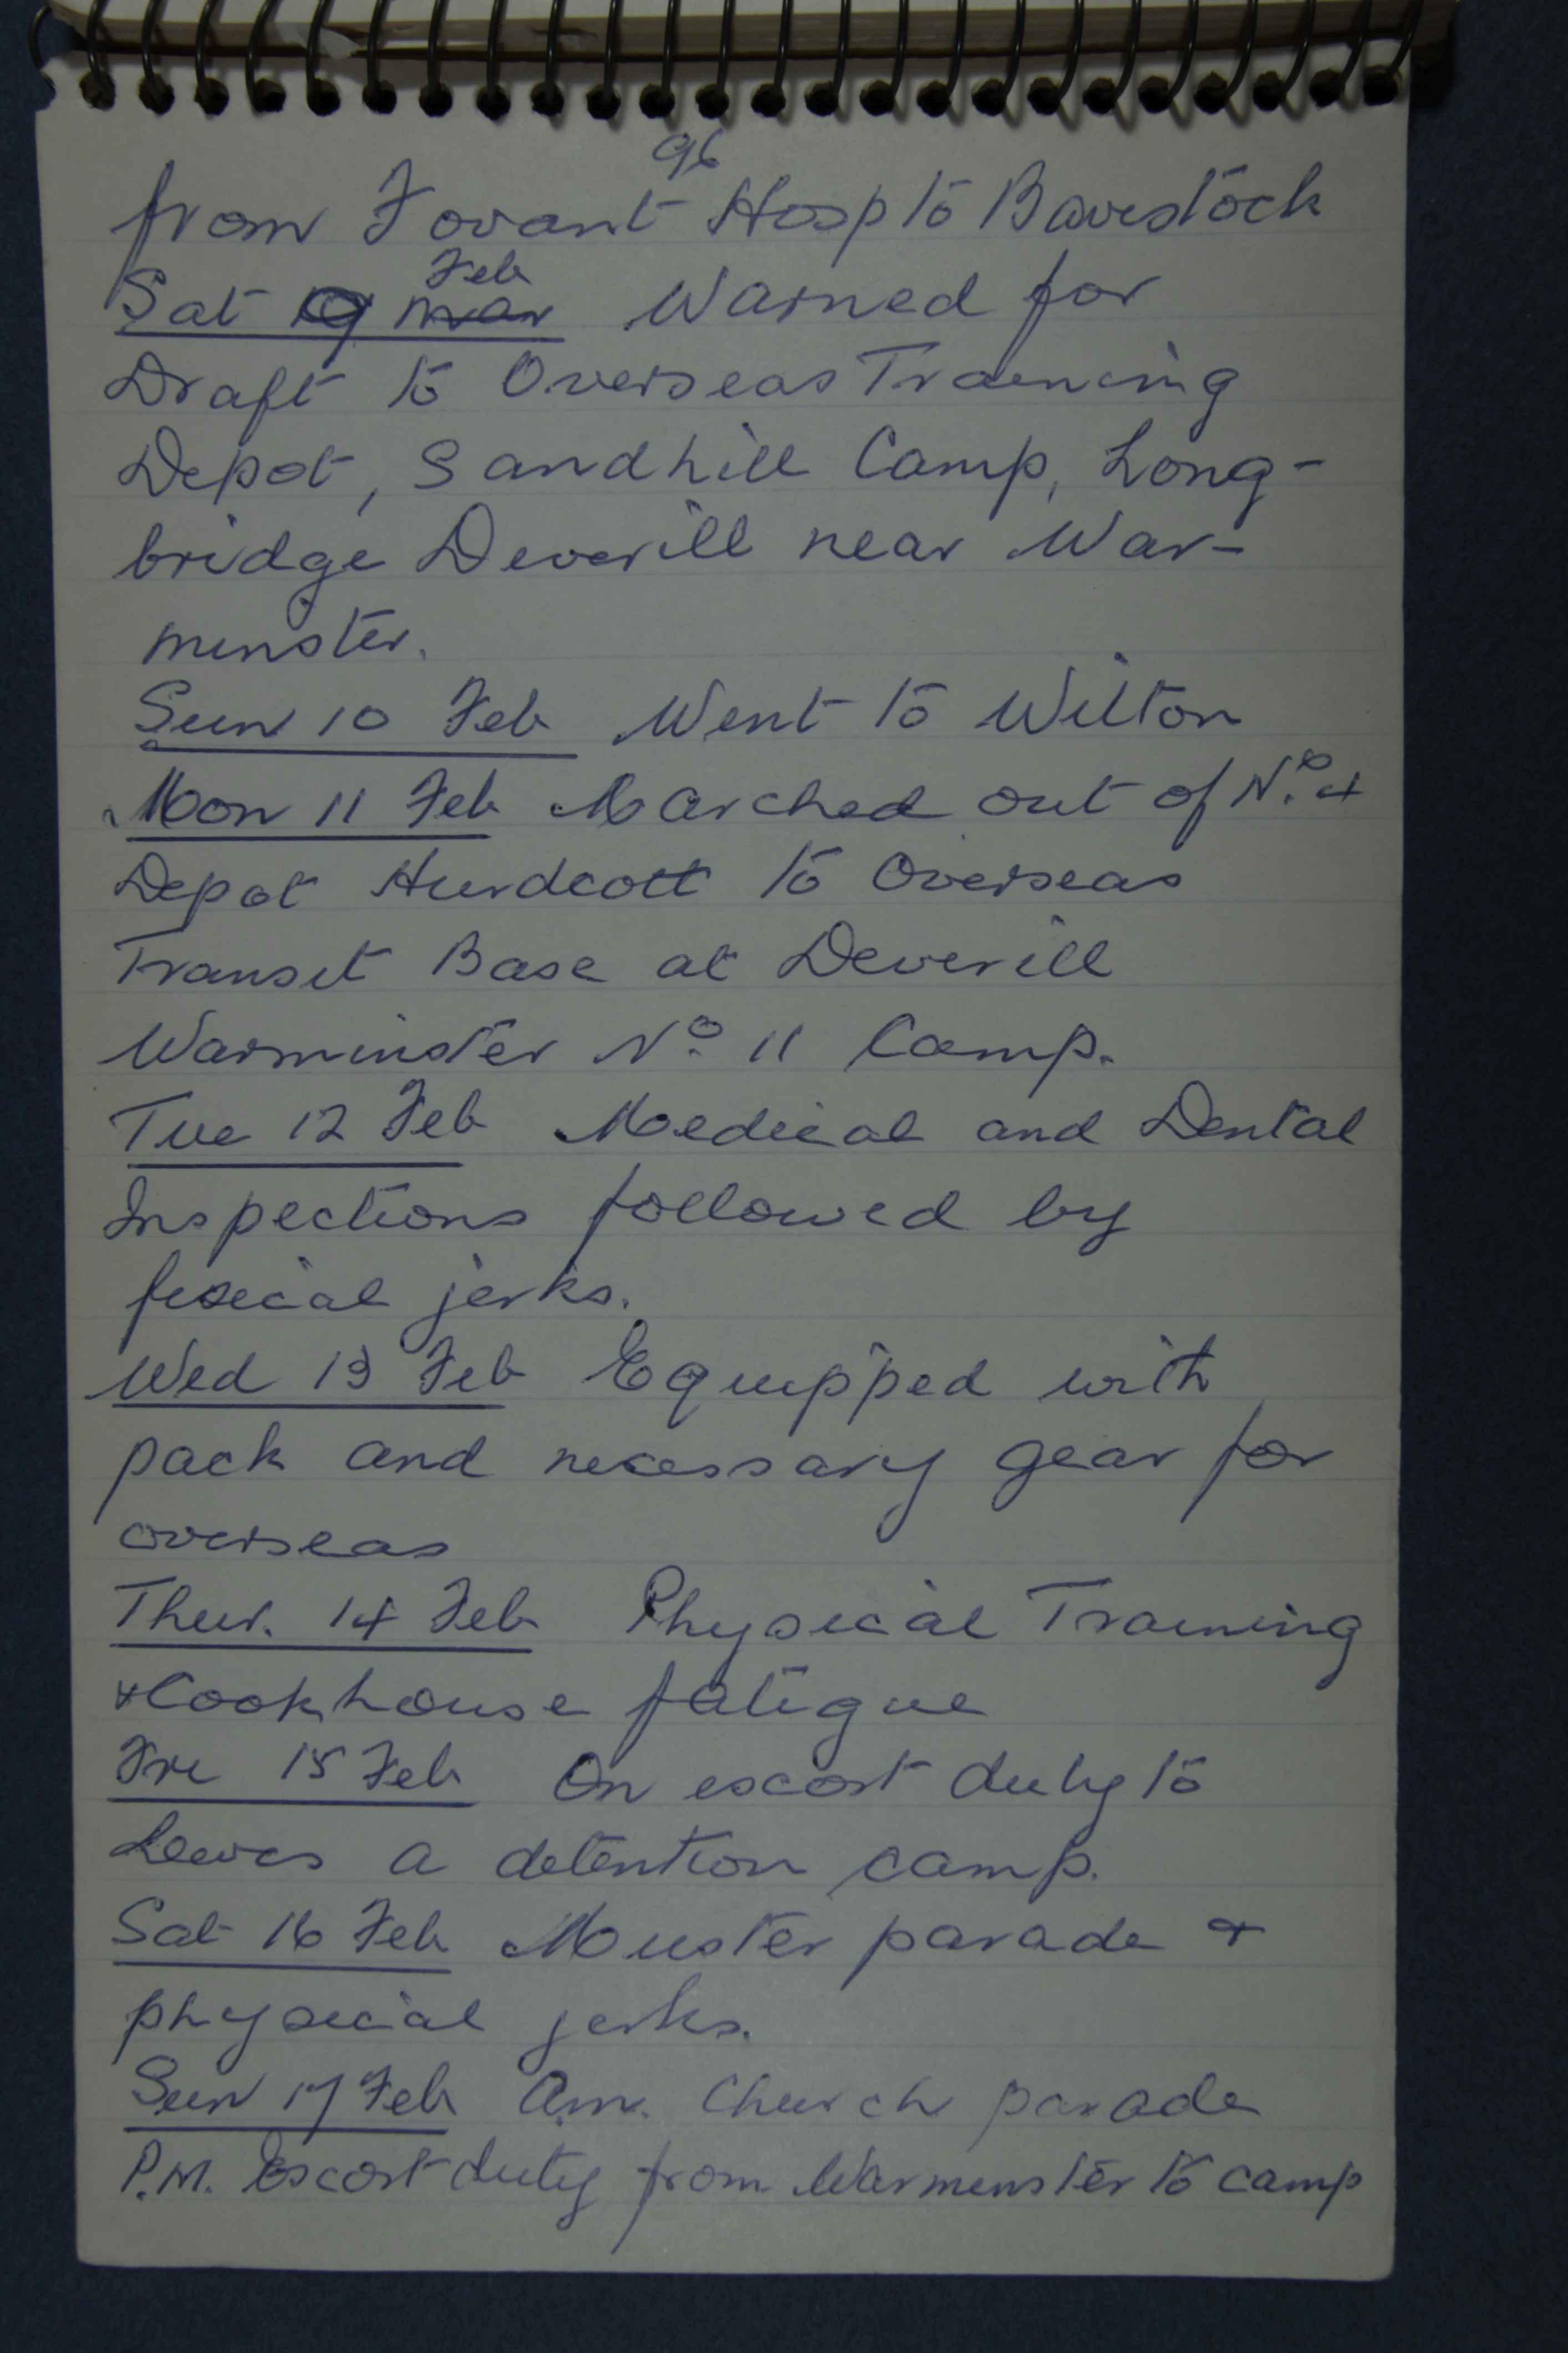 96
from Fovant Hosp to Baverstock
Sat 9 Feb Warned for
Draft to Overseas Training
Depot, Sandhill Camp, Long-
bridge Deverill near War-
minster.
Sun 10 Feb Went to Wilton
Mon 11 Feb Marched out of No. 4
Depot Hurdcott to Overseas
Transit Base at Deverill
Warminster No. 11 Camp.
Tue 12 Feb Medical and Dental
Inspections followed by
fisical jerks.
Wed 13 Feb Equipped with
pack and necessary gear for
overseas
Thur. 14 Feb Physical Training
& Cookhouse fatigue
Fri 15 Feb On escort duty to
Lewes a detention camp.
Sat 16 Feb Muster parade &
physical jerks.
Sun 17 Feb A.m. Church parade
P.M. Escort duty from Warminster to camp